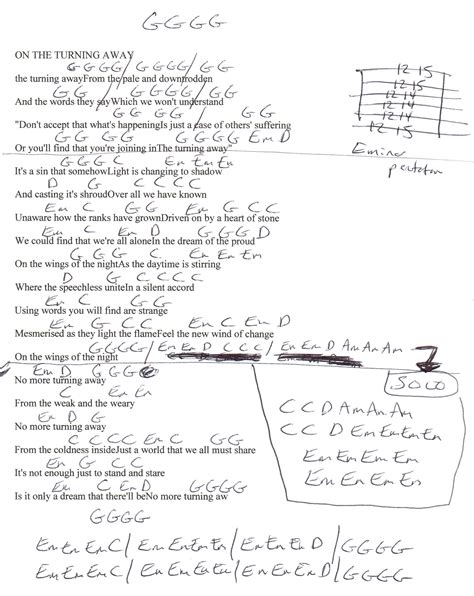 G G G G
ON THE TURNING AWAY
G G G G / G G G G / G G
the turning awayFrom the pale and downtrodden
G G G G / G G
And the words they sayWhich we won't understand
G G G G G G
"Don't accept that what's happeningIs just a case of others' suffering
G G G G G G G G Em D
Or you'll find that you're joining inThe turning away"
12 15
12 15
12 14
12 14
12 14
12 15
E minor
G G G C Em Em Em
It's a sin that somehowLight is changing to shadow
D G C C C C
And casting it's shroudOver all we have known
Em C G G Em G C C
Unaware how the ranks have grownDriven on by a heart of stone
Em C Em D G G G D
We could find that we're all aloneIn the dream of the proud
G G G C Em Em Em
On the wings of the nightAs the daytime is stirring
D G C C C C
Where the speechless uniteIn a silent accord
Em C G G
Using words you will find are strange
Em G C C Em C Em D
Mesmerised as they light the flameFeel the new wind of change
G G G G / Em Em D C C C / Em Em D Am Am Am
On the wings of the night
SOLO
Em D G G G
No more turning away
C Em Em
From the weak and the weary
Em D G
No more turning away
C C C C Em C G G
From the coldness insideJust a world that we all must share
Em G C C
It's not enough just to stand and stare
Em C Em D G G G G
Is it only a dream that there'll beNo more turning aw
C C D Am Am Am
C C D Em Em Em Em
Em Em Em Em
Em Em Em Em
G G G G
Em Em Em C / Em Em Em Em / Em Em Em D / G G G G
Em Em Em C / Em Em Em Em / Em Em Em D / G G G G